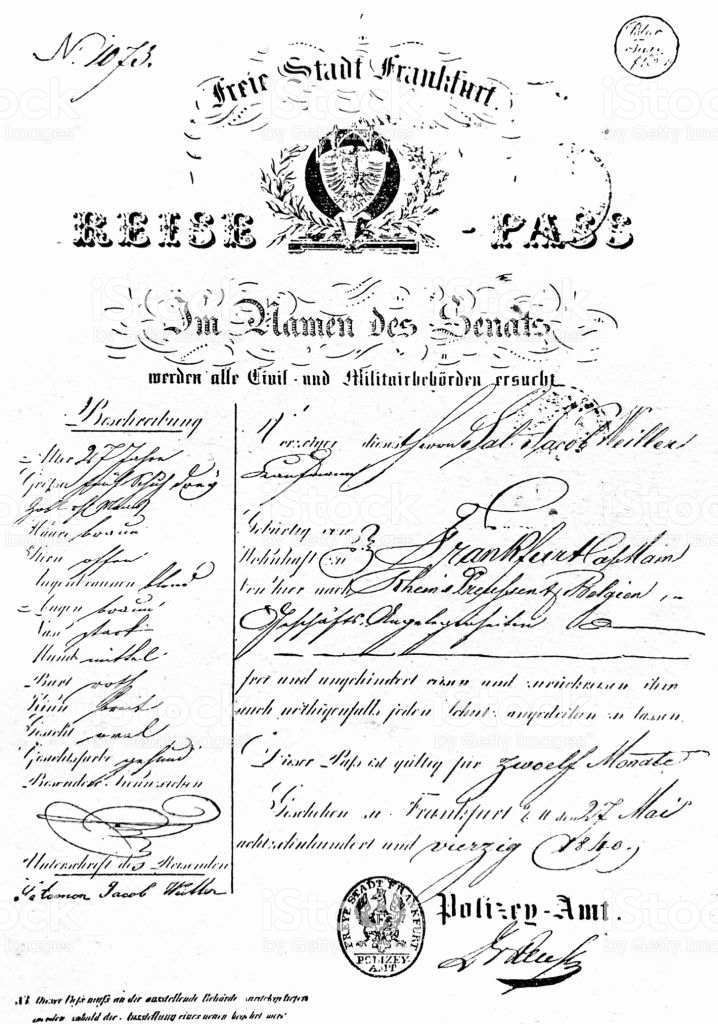 N. 1073.
Freie Stadt Frankfurt.
REISE - PASS
Im Namen des Senats
werden alle Civil- und Militairbehörden ersucht
Beschreibung
Alter 27 Jahre
Größe fünf Schuh drey
Zoll
Haare braun
Stirn offen
Augenbraunen blond
Augen braun
Nase stark
Mund mittel
Bart roth
Kinn breit
Gesicht oval
Gesichtsfarbe gesund
Besondere Kennzeichen
Unterschrift des Reisenden
Salomon Jacob Weiller
Vorzeiger dieses Herrn Sal. Jacob Weiller
Kaufmann
Gebürtig von
Wohnhaft zu Frankfurt a/Main
von hier nach Rhein Preussen & Belgien in
Geschäfts-Angelegenheiten
frei und ungehindert reisen und zurückreisen ihm
auch nöthigenfalls jeden Schutz angedeihen zu lassen.
Dieser Pass ist gültig für zwoelf Monate
Geschehen zu Frankfurt a/M den 27 Mai
achtzehnhundert und vierzig (1840.)
FREYE STADT FRANKFURT
POLIZEY
AMT
Polizey-Amt.
NB Dieser Pass muss an die ausstellende Behörde zurückgeliefert
werden sobald die Ausstellung eines neuen begehrt wird
iStock
by Getty Images